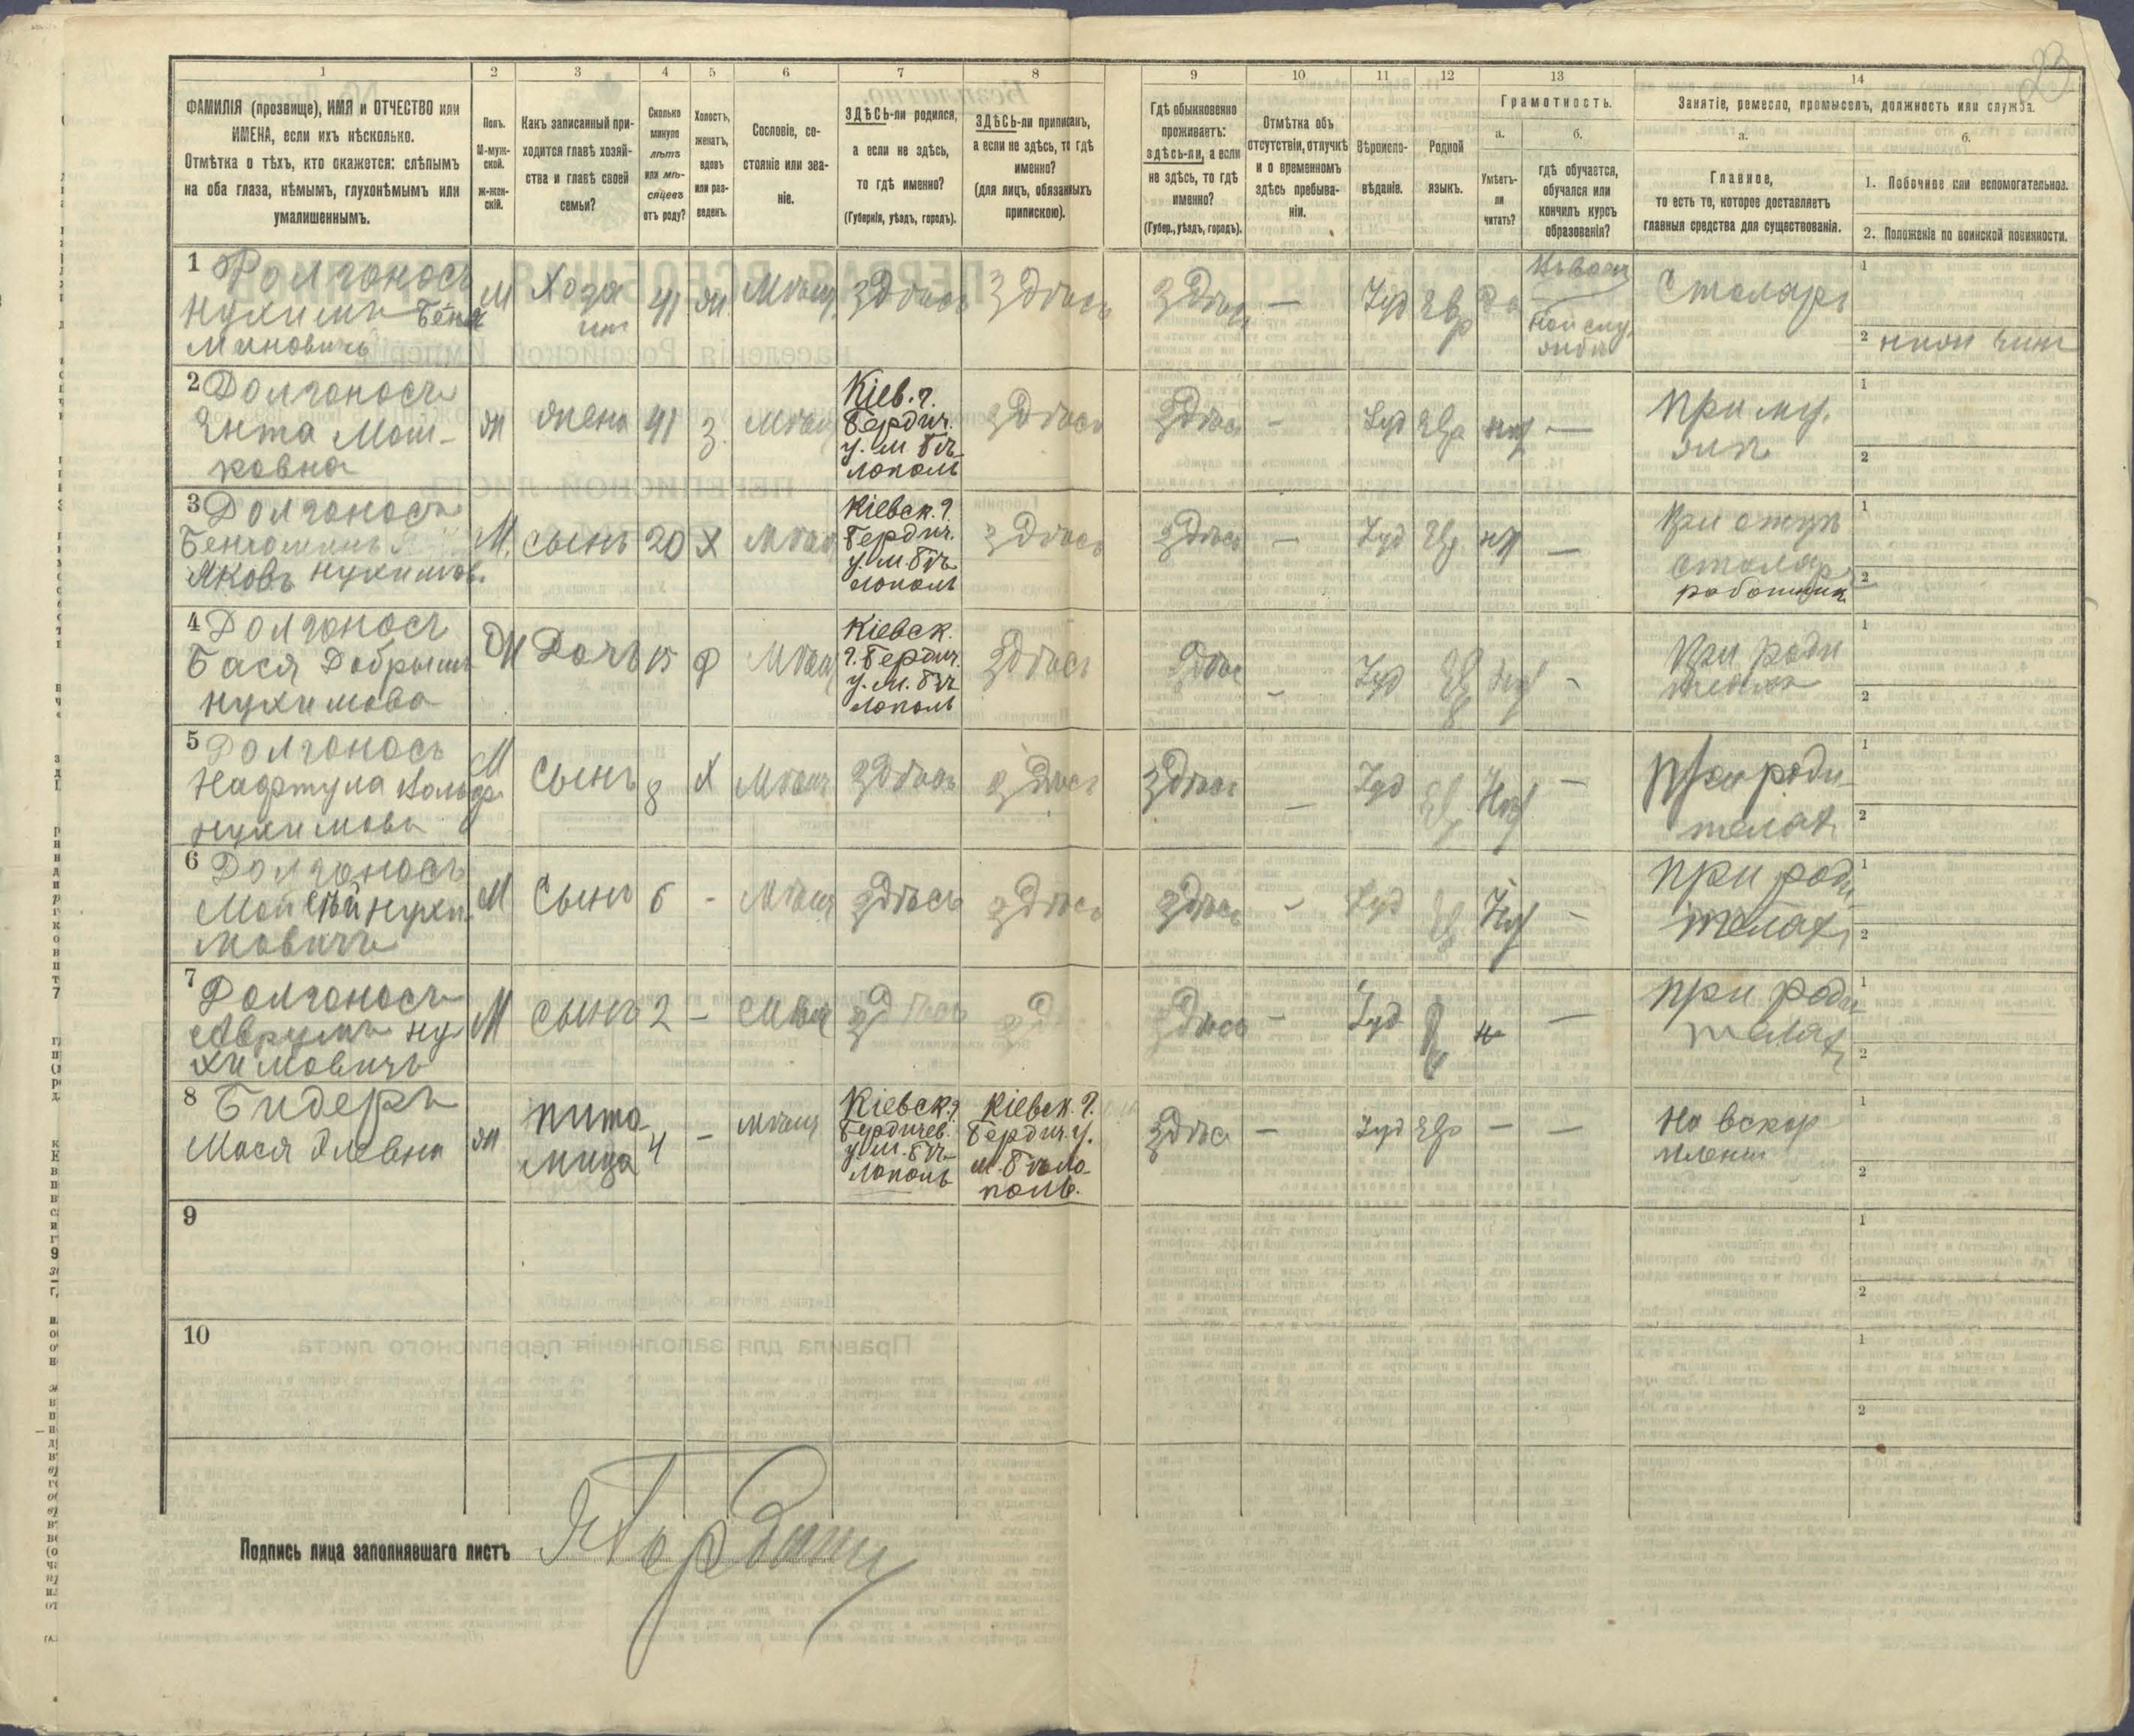 23
1
2
3
4
5
6
7
8
9
10
11
12
13
14
ФАМИЛІЯ (прозвище), ИМЯ и ОТЧЕСТВО или
ИМЕНА, если ихъ нѣсколько.
Отмѣтка о тѣхъ, кто окажется: слѣпымъ
на оба глаза, нѣмымъ, глухонѣмымъ или
умалишеннымъ.
Полъ.
М-муж-
ской.
ж-жен-
скій.
Какъ записанный при-
ходится главѣ хозяй-
ства и главѣ своей
семьи?
Сколько
минуло
лѣтъ
или мѣ-
сяцевъ
отъ роду?
Холостъ,
женатъ,
вдовъ
или раз-
веденъ.
Сословіе, со-
стояніе или зва-
ніе.
ЗДѢСЬ-ли родился,
а если не здѣсь,
то гдѣ именно?
(Губернія, уѣздъ, городъ).
ЗДѢСЬ-ли приписанъ,
а если не здѣсь, то гдѣ
именно?
(для лицъ, обязанныхъ
припискою).
Гдѣ обыкновенно
проживаетъ:
здѣсь-ли, а если
не здѣсь, то гдѣ
именно?
(Губер., уѣздъ, городъ).
Отмѣтка объ
отсутствіи, отлучкѣ
и о временномъ
здѣсь пребыва-
ніи.
Вѣроиспо-
вѣданіе.
Родной
языкъ.
Грамотность.
а.
Умѣетъ-
ли
читать?
б.
гдѣ обучается,
обучался или
кончилъ курсъ
образованія?
Занятіе, ремесло, промыселъ, должность или служба.
а.
Главное,
то есть то, которое доставляетъ
главныя средства для существованія.
б.
1. Побочное или вспомогательное.
2. Положеніе по воинской повинности.
1 Долгоносъ
Нухимъ Беня
миновичъ
М
Хозя
инъ
41
ж.
Мѣщ.
здѣсь
здѣсь
здѣсь
—
Іуд
Евр
да
Столяръ
1
2
2 Долгоносъ
Энта Мош-
ковна
ж
жена
41
з.
Мѣщ
Кіев. г.
Бердич.
у. м. Бѣ-
лополь
здѣсь
здѣсь
—
Іуд
Евр
нѣт
—
При му.
жѣ
1
2
3 Долгоносъ
Бенюминъ
Яковъ Нухимов.
М.
сынъ
20
Х
Мѣщ
Кіевск. г.
Бердич.
у. м. Бѣ-
лополь
здѣсь
здѣсь
—
Іуд
Евр.
нѣт
—
При отцѣ
столяр
работник
1
2
4 Долгоносъ
Бася Добрышъ
Нухимова
Ж
Дочь
15
д
Мѣщ
Кіевск.
г. Бердич.
у. м. Бѣ-
лополь
здѣсь
здѣсь
—
Іуд
Евр
нѣт
-
При роди
теляхъ
1
2
5 Долгоносъ
Нафтула Вольф
Нухимовъ
М
Сынъ
8
Х
Мѣщ
здѣсь
здѣсь
здѣсь
—
Іуд
Евр
Нѣт
—
При роди-
телях
1
2
6 Долгоносъ
Мойсѣй Нухи
мовичъ
М
Сынъ
6
-
Мѣщ
здѣсь
здѣсь
здѣсь
-
Іуд
Ев
Нѣт
-
При роди
телях
1
2
7 Долгоносъ
Аврумъ Ну
химовичъ
М
Сынъ
2
-
Мѣщ
здѣсь
зд
здѣсь
-
Іуд
Ев
н
—
При роди
телях
1
2
8 Бидеръ
Мося
ж
пито
мица
4
-
Мѣщ
Кіевск. г.
Бердичев.
у. м. Бѣ-
лополь
Кіевск. г.
Бердич. у.
м. Бѣло
поль.
здѣс
—
Іуд
Евр
—
—
На вскор
мленіи
1
2
9
1
2
10
1
2
Подпись лица заполнявшаго листъ